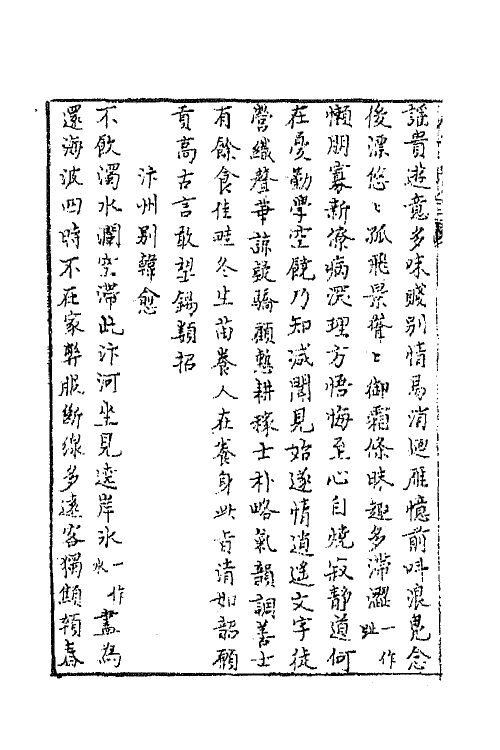 謡貴遊意多味賤别情易消迴雁憶前叫浪鳬念
後漂悠〻孤飛景聳〻御霜條昧趣多滯澀一作趾
懶朋寡新僚病深理方悟悔至心自燒寂静道何
在憂勤學空饒乃知减聞見始遂情逍遥文字徒
營織聲華諒疑驕顧慙耕稼士朴略氣韻調善士
有餘食佳畦冬生苗養人在養身此旨清如韶願
貢高古言敢望錫類招
汴州别韓愈
不飲濁水瀾空滯此汴河坐見遶岸冰一作水盡為
還海波四時不在家弊服斷線多遠客獨顦顇春